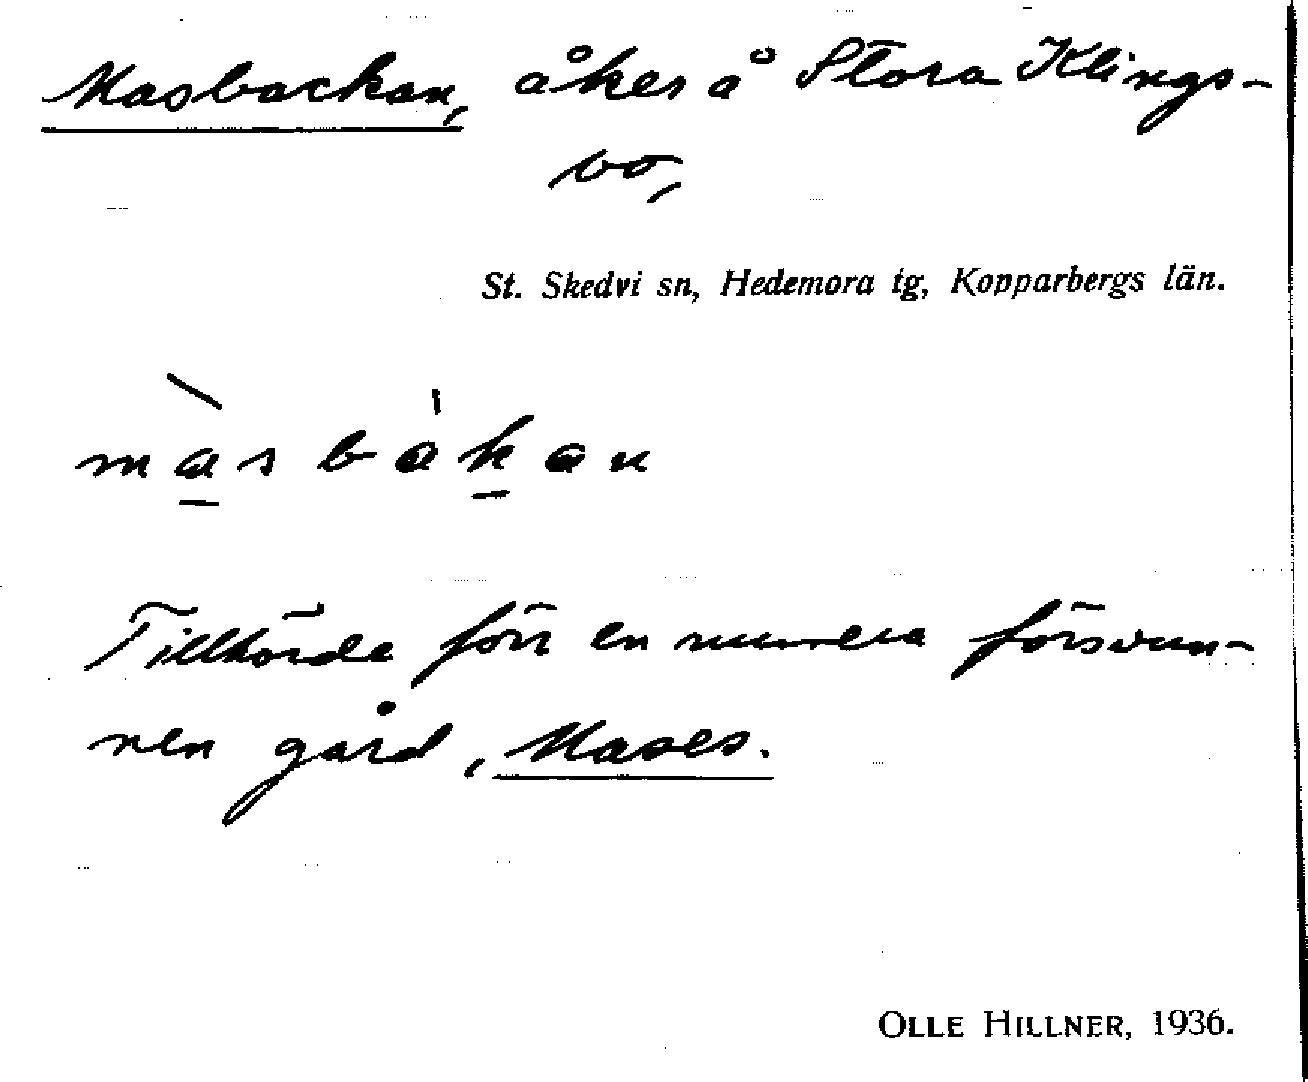 Masbackan, åker å Stora Klings-
bo,
St. Skedvi sn, Hedemora tg, Kopparbergs län.
màsbákan
Tillhörde förr en numera försvun-
nen gård, Mases.
OLLE HILLNER, 1936.